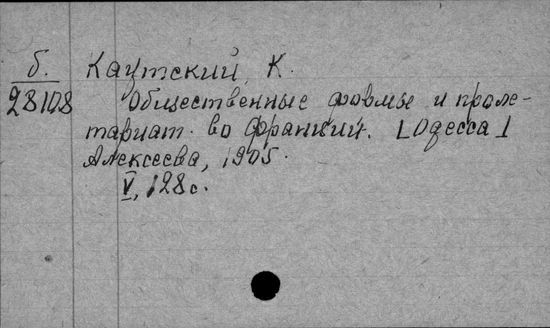 б. Каутский, К.
28108 Общественные формы и проле-
тариат во Франции. [Одесса]
Алексеева, 1905.
V, 128 с.